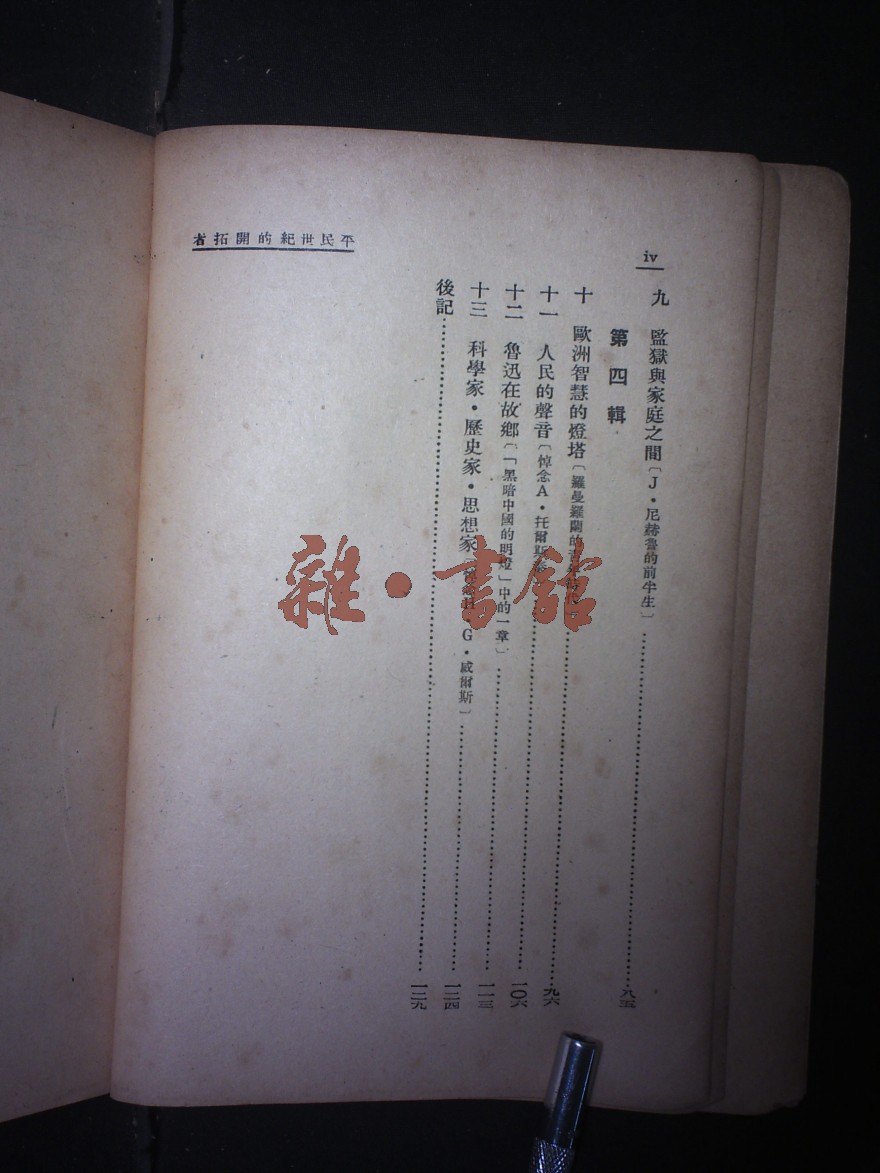 平民世紀的開拓者
iv
九　監獄與家庭之間〔J・尼赫魯的前半生〕……八五
第四輯
十　歐洲智慧的燈塔〔羅曼羅蘭的……九六
十一　人民的聲音〔悼念A・托爾斯……一〇六
十二　魯迅在故鄉〔「黑暗中國的明燈」中的一章〕……一一三
十三　科學家・歷史家・思想家　G・威爾斯〕……一二四
後記……一二九
雜・書館